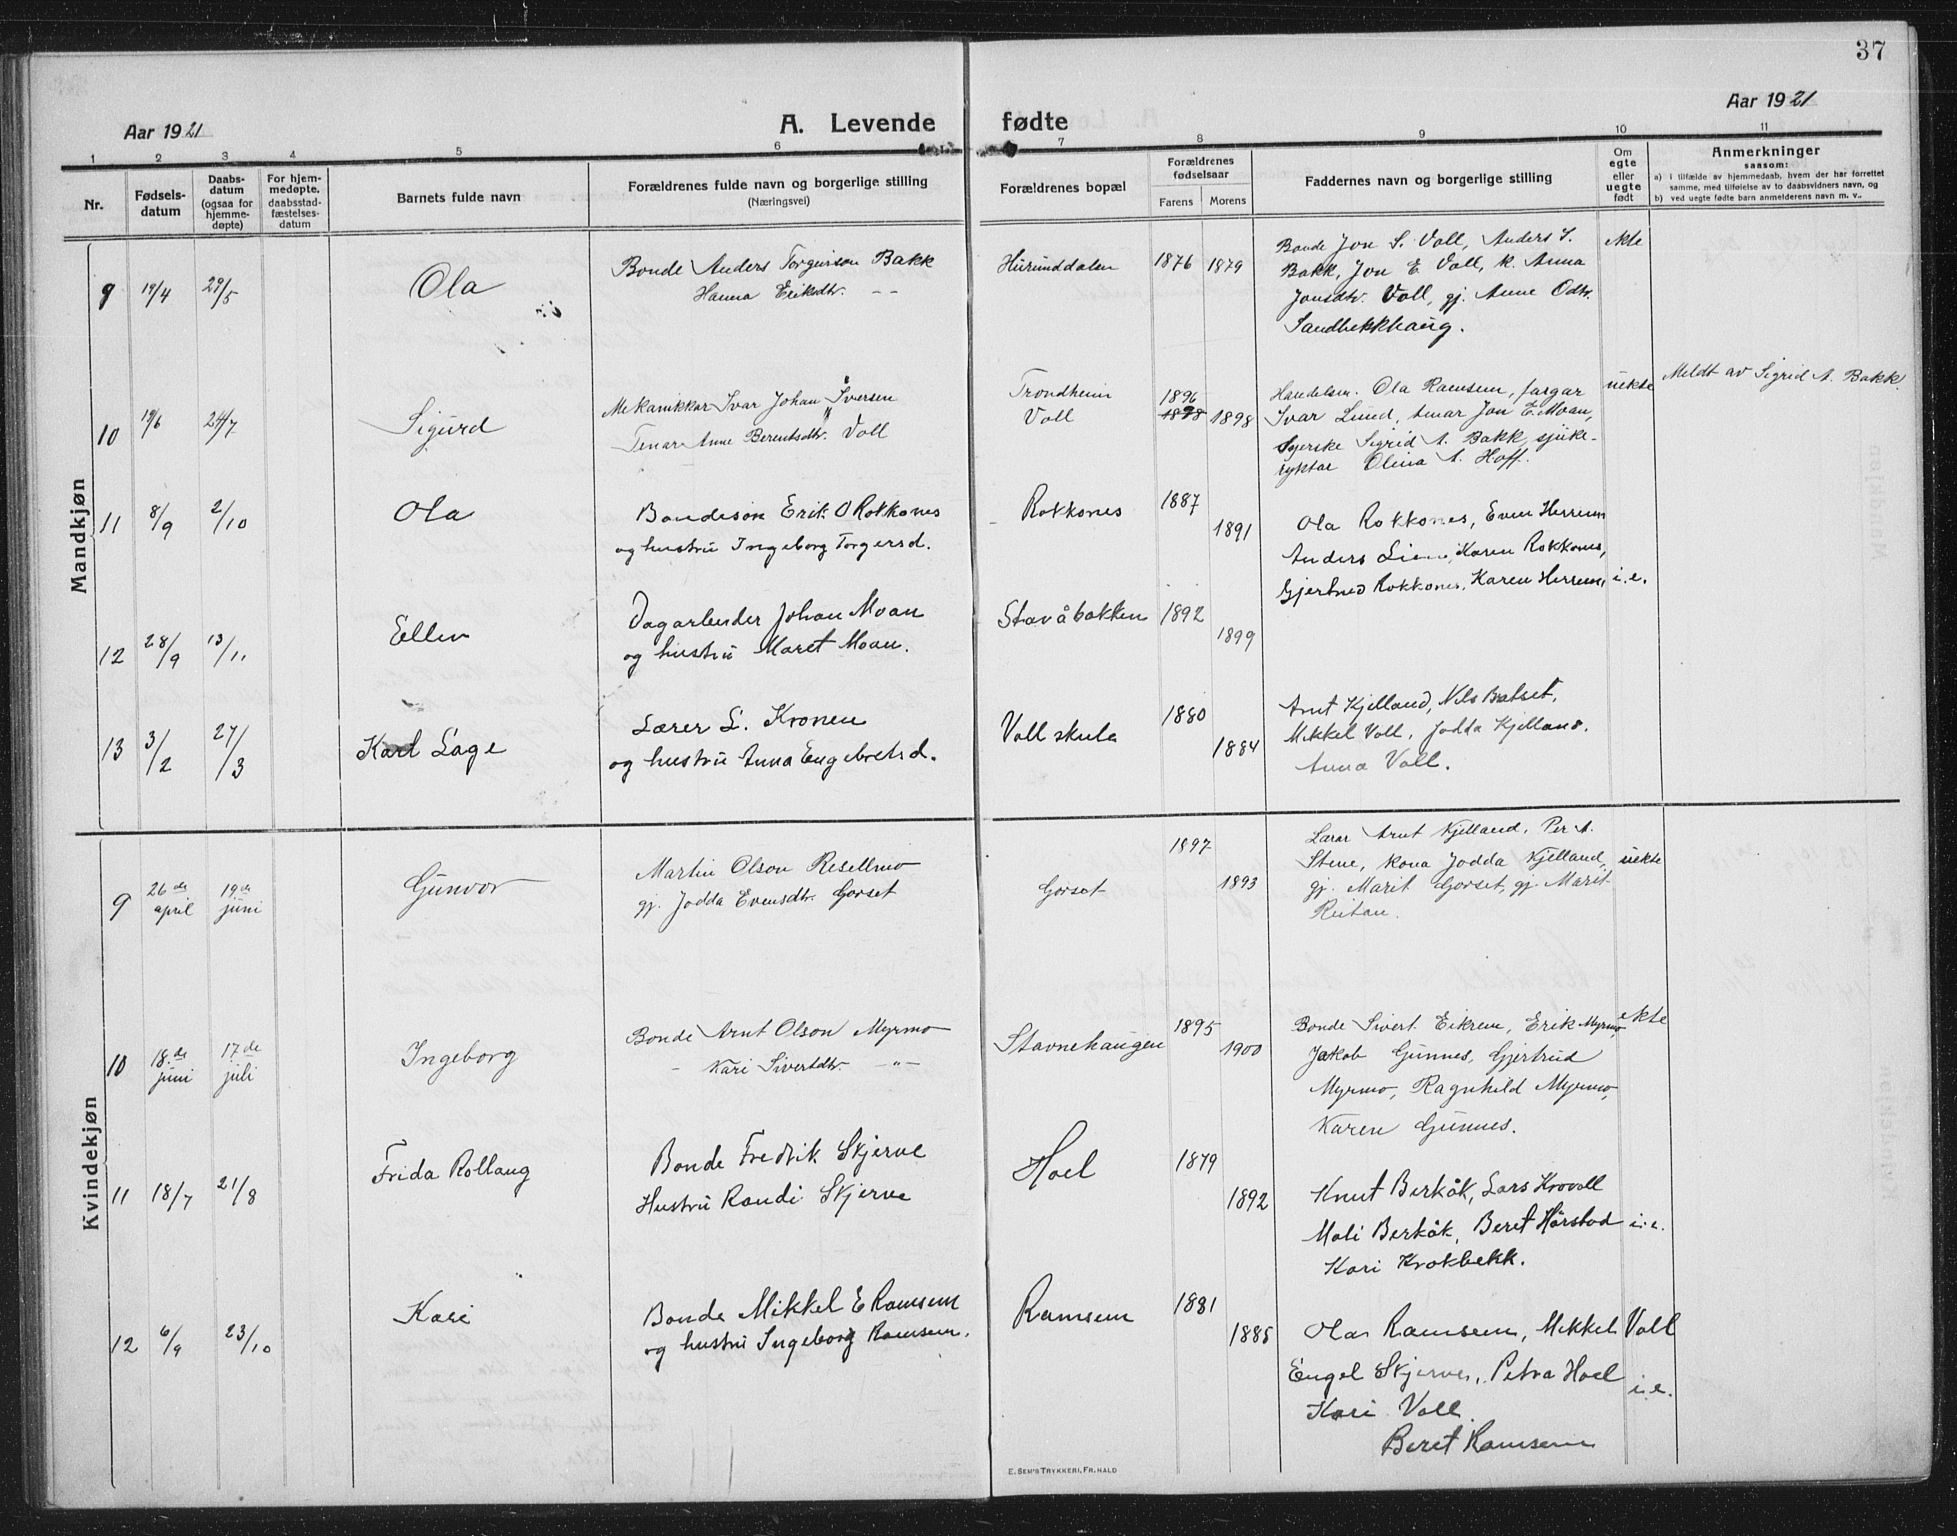 37
Aar 1921
A. Levende fødte
Aar 1921
1 2 3 4 5 6 7 8 9 10 11
Nr.
Fødsels-
datum
Daabs-
datum
(ogsaa for
hjemme-
døpte)
For hjem-
medøpte,
daabsstad-
fæstelses-
datum
Barnets fulde navn
Forældrenes fulde navn og borgerlige stilling
(Næringsvei)
Forældrenes bopæl
Forældrenes
fødselsaar
Farens Morens
Faddernes navn og borgerlige stilling
Om
egte
eller
uegte
født
Anmerkninger
saasom:
a) i tilfælde av hjemmedaab, hvem der har forrettet
samme, med tilføielse av to daabsvidners navn, og
b) ved uegte fødte barn anmelderens navn m. v..
Mandkjøn
9 19/4 29/5 Ola
Bonde Anders Torgeirson Bakk
Hanna Eriksdtr. – –
Hurunddalen 1876 1879
Bonde Jon S. Voll, Anders T.
Bakk, Jon E Voll, k. Anna
Jonsdtr. Voll, gj. Anne Odtr.
Sandbekkhaug.
ekte
10 19/6 24/7 Sigurd
Mekanikkar Ivar Johan Iversen
Tenar Anne Berentsdtr. Voll
Trondheim
Voll
1896
1898 1898
Handelsm. Ola Ramsem, fargar
Ivar Lund, tenar Jon E. Moan,
Syerske Sigrid A. Bakk, sjuke-
ryktar Olina A. Hoff.
uekte
Meldt av Sigrid A. Bakk.
11 8/9 2/10 Ola
Bondesøn Erik O Rokkones
og hustru Ingeborg Torgersd.
Rokkones 1887 1891
Ola Rokkones, Even Herrem
Anders Lien, Karen Rokkones,
Gjertrud Rokkones, Karen Herrem, i.e.
12 28/9 13/11 Ellev
Dagarbeider Johan Moan
og hustru Maret Moan.
Stavåbakken 1892 1899
13 3/2 27/3 Karl Lage
Lærer L. Kronen
og hustru Anna Engebretsd.
Voll skule 1880 1884
Arnt Kjelland, Nils Batset,
Mikkel Voll, Jodda Kjelland.
Anna Voll.
Kvindekjøn
9 26de april 19de juni Gunvor
Martin Olson Resellmo
gj. Jodda Evensdtr. Gorset
Gorset 1897 1893
Lærar Arnt Kjelland, Per A.
Stene, kona Jodda Kjelland,
gj. Marit Gorset, gj. Marit
Reitan.
uekte
10 18.de juni 17de juli Ingeborg
Bonde Arnt Olson Myrmo
– Kari Sivertsdtr. –"–
Stavnehaugen 1895 1900
Bonde Sivert Eikrem, Erik Myrmo,
Jakob Gunnes, Gjertrud
Myrmo, Ragnhild Myrmo,
Karen Gunnes.
ekte
11 18/7 21/8 Frida Rollaug
Bonde Fredrik Skjerve
Hustru Randi Skjerve
Hoel 1879 1892
Knut Berkåk, Lars Krovoll
Mali Berkåk, Beret Hårstad
Kari Krokbekk.
i.e.
12 6/9 23/10 Kari
Bonde Mikkel E Ramsem
og hustru Ingeborg Ramsem.
Ramsem 1881 1885
Ola Ramsem, Mikkel Voll
Engel Skjerve, Petra Hoel
Kari Voll.
Beret Ramsem
i.e.
E. SEM'S TRYKKERI, FR.HALD